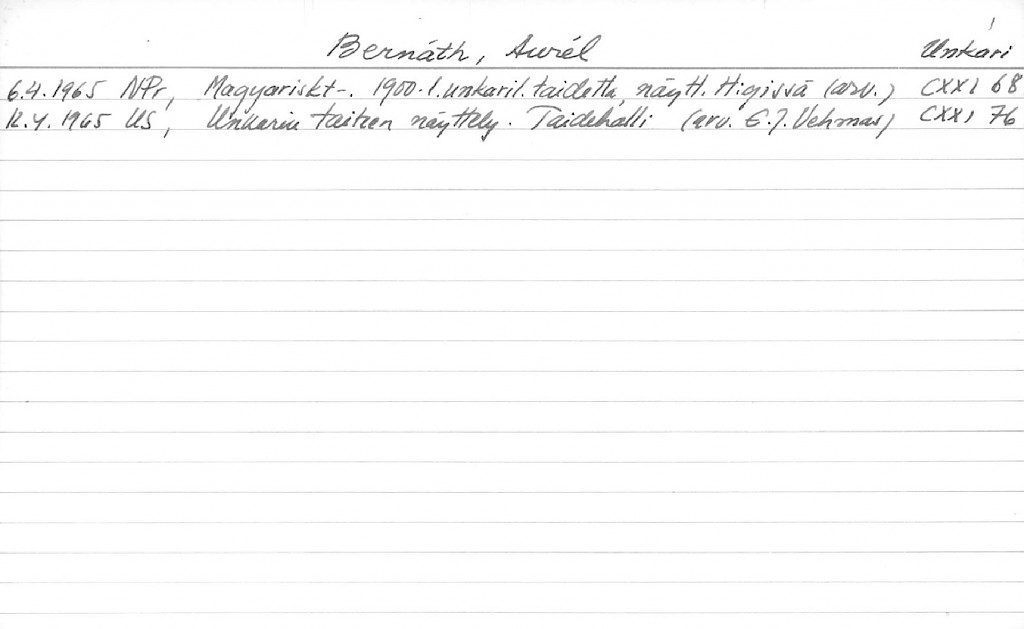 Bernáth, Aurél Unkari
6.4.1965 NPr, Magyariskt-. 1900-l. unkaril. taidetta, näytt. H:gissä (arv.) CXXI 68
12.4.1965 US, Unkarin taiteen näyttely. Taidehalli (arv. E.J. Vehmas) CXXI 76